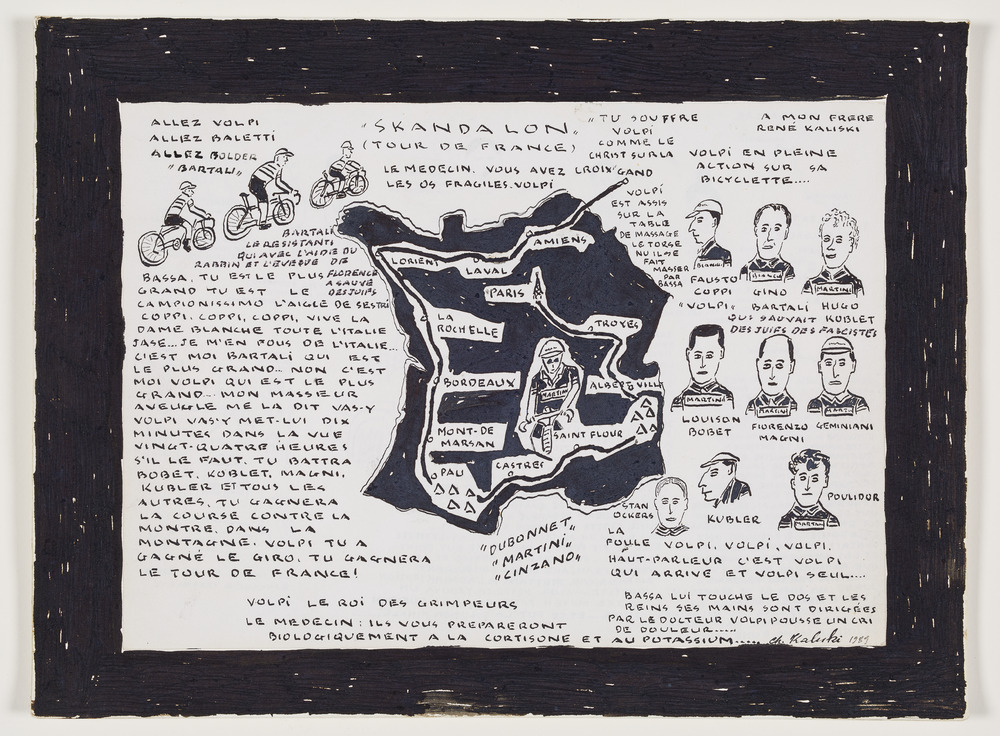 ALLEZ VOLPI
ALLEZ BALETTI
ALLEZ BOLDER
"BARTALI"
"SKANDALON"
(TOUR DE FRANCE)
LE MEDECIN. VOUS AVEZ
LES OS FRAGILES. VOLPI
"TU SOUFFRE
VOLPI
COMME LE
CHRIST SUR LA
CROIX" GAND
A MON FRERE
RENÉ KALISKI
VOLPI EN PLEINE
ACTION SUR SA
BICYCLETTE....
VOLPI
EST ASSIS
SUR LA
TABLE
DE MASSAGE
LE TORSE
NU IL SE
FAIT
MASSER
PAR
BASSA
BARTALI
LE RESISTANT
QUI AVEC L'AIDE DU
RABBIN ET L'EVEQUE DE
FLORENCE
A SAUVÉ
DES JUIFS
BASSA. TU EST LE PLUS
GRAND TU EST LE
CAMPIONISSIMO L'AIGLE DE SESTRI
COPPI. COPPI, COPPI, VIVE LA
DAME BLANCHE TOUTE L'ITALIE
JASE... JE M'EN FOUS DE L'ITALIE...
C'EST MOI BARTALI QUI EST
LE PLUS GRAND... NON C'EST
MOI VOLPI QUI EST LE PLUS
GRAND... MON MASSEUR
AVEUGLE ME LA DIT VAS-Y
VOLPI VAS-Y MET-LUI DIX
MINUTES DANS LA VUE
VINGT-QUATRE HEURES
S'IL LE FAUT. TU BATTRA
BOBET, KOBLET, MAGNI,
KUBLER ET TOUS LES
AUTRES. TU GAGNERA
LA COURSE CONTRE LA
MONTRE. DANS LA
MONTAGNE. VOLPI TU A
GAGNÉ LE GIRO. TU GAGNERA
LE TOUR DE FRANCE!
LORIENT
LAVAL
AMIENS
PARIS
LA
ROCHELLE
TROYES
BORDEAUX
ALBERTVILLE
MARTINI
MONT-DE
MARSAN
SAINT FLOUR
PAU
CASTRES
BIANCHI
BIANCHI
MARTINI
FAUSTO
COPPI
GINO
"VOLPI" BARTALI HUGO
QUI SAUVAIT KOBLET
DES JUIFS DES FASCISTES
MARTINI
MARTINI
MARTINI
LOUISON
BOBET
FIORENZO
MAGNI
GEMINIANI
STAN
OCKERS
KUBLER
MARTINI
POULIDOR
"DUBONNET"
"MARTINI"
"CINZANO"
LA
FOULE VOLPI, VOLPI, VOLPI.
HAUT-PARLEUR C'EST VOLPI
QUI ARRIVE ET VOLPI SEUL....
VOLPI LE ROI DES GRIMPEURS
LE MEDECIN: ILS VOUS PREPARERONT
BIOLOGIQUEMENT A LA CORTISONE ET AU POTASSIUM.....
BASSA LUI TOUCHE LE DOS ET LES
REINS SES MAINS SONT DIRIGÉES
PAR LE DOCTEUR VOLPI POUSSE UN CRI
DE DOULEUR.....
Ch. Kaliski 1989